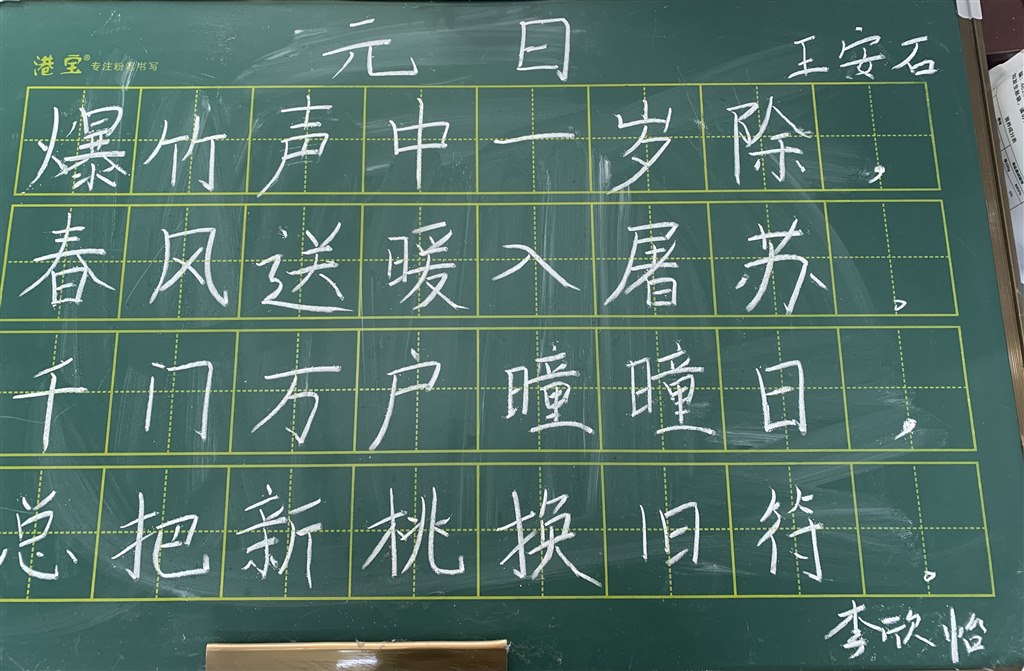 元日
王安石
港宝® 专注粉笔书写
爆竹声中一岁除，
春风送暖入屠苏。
千门万户曈曈日，
总把新桃换旧符。
李欣怡